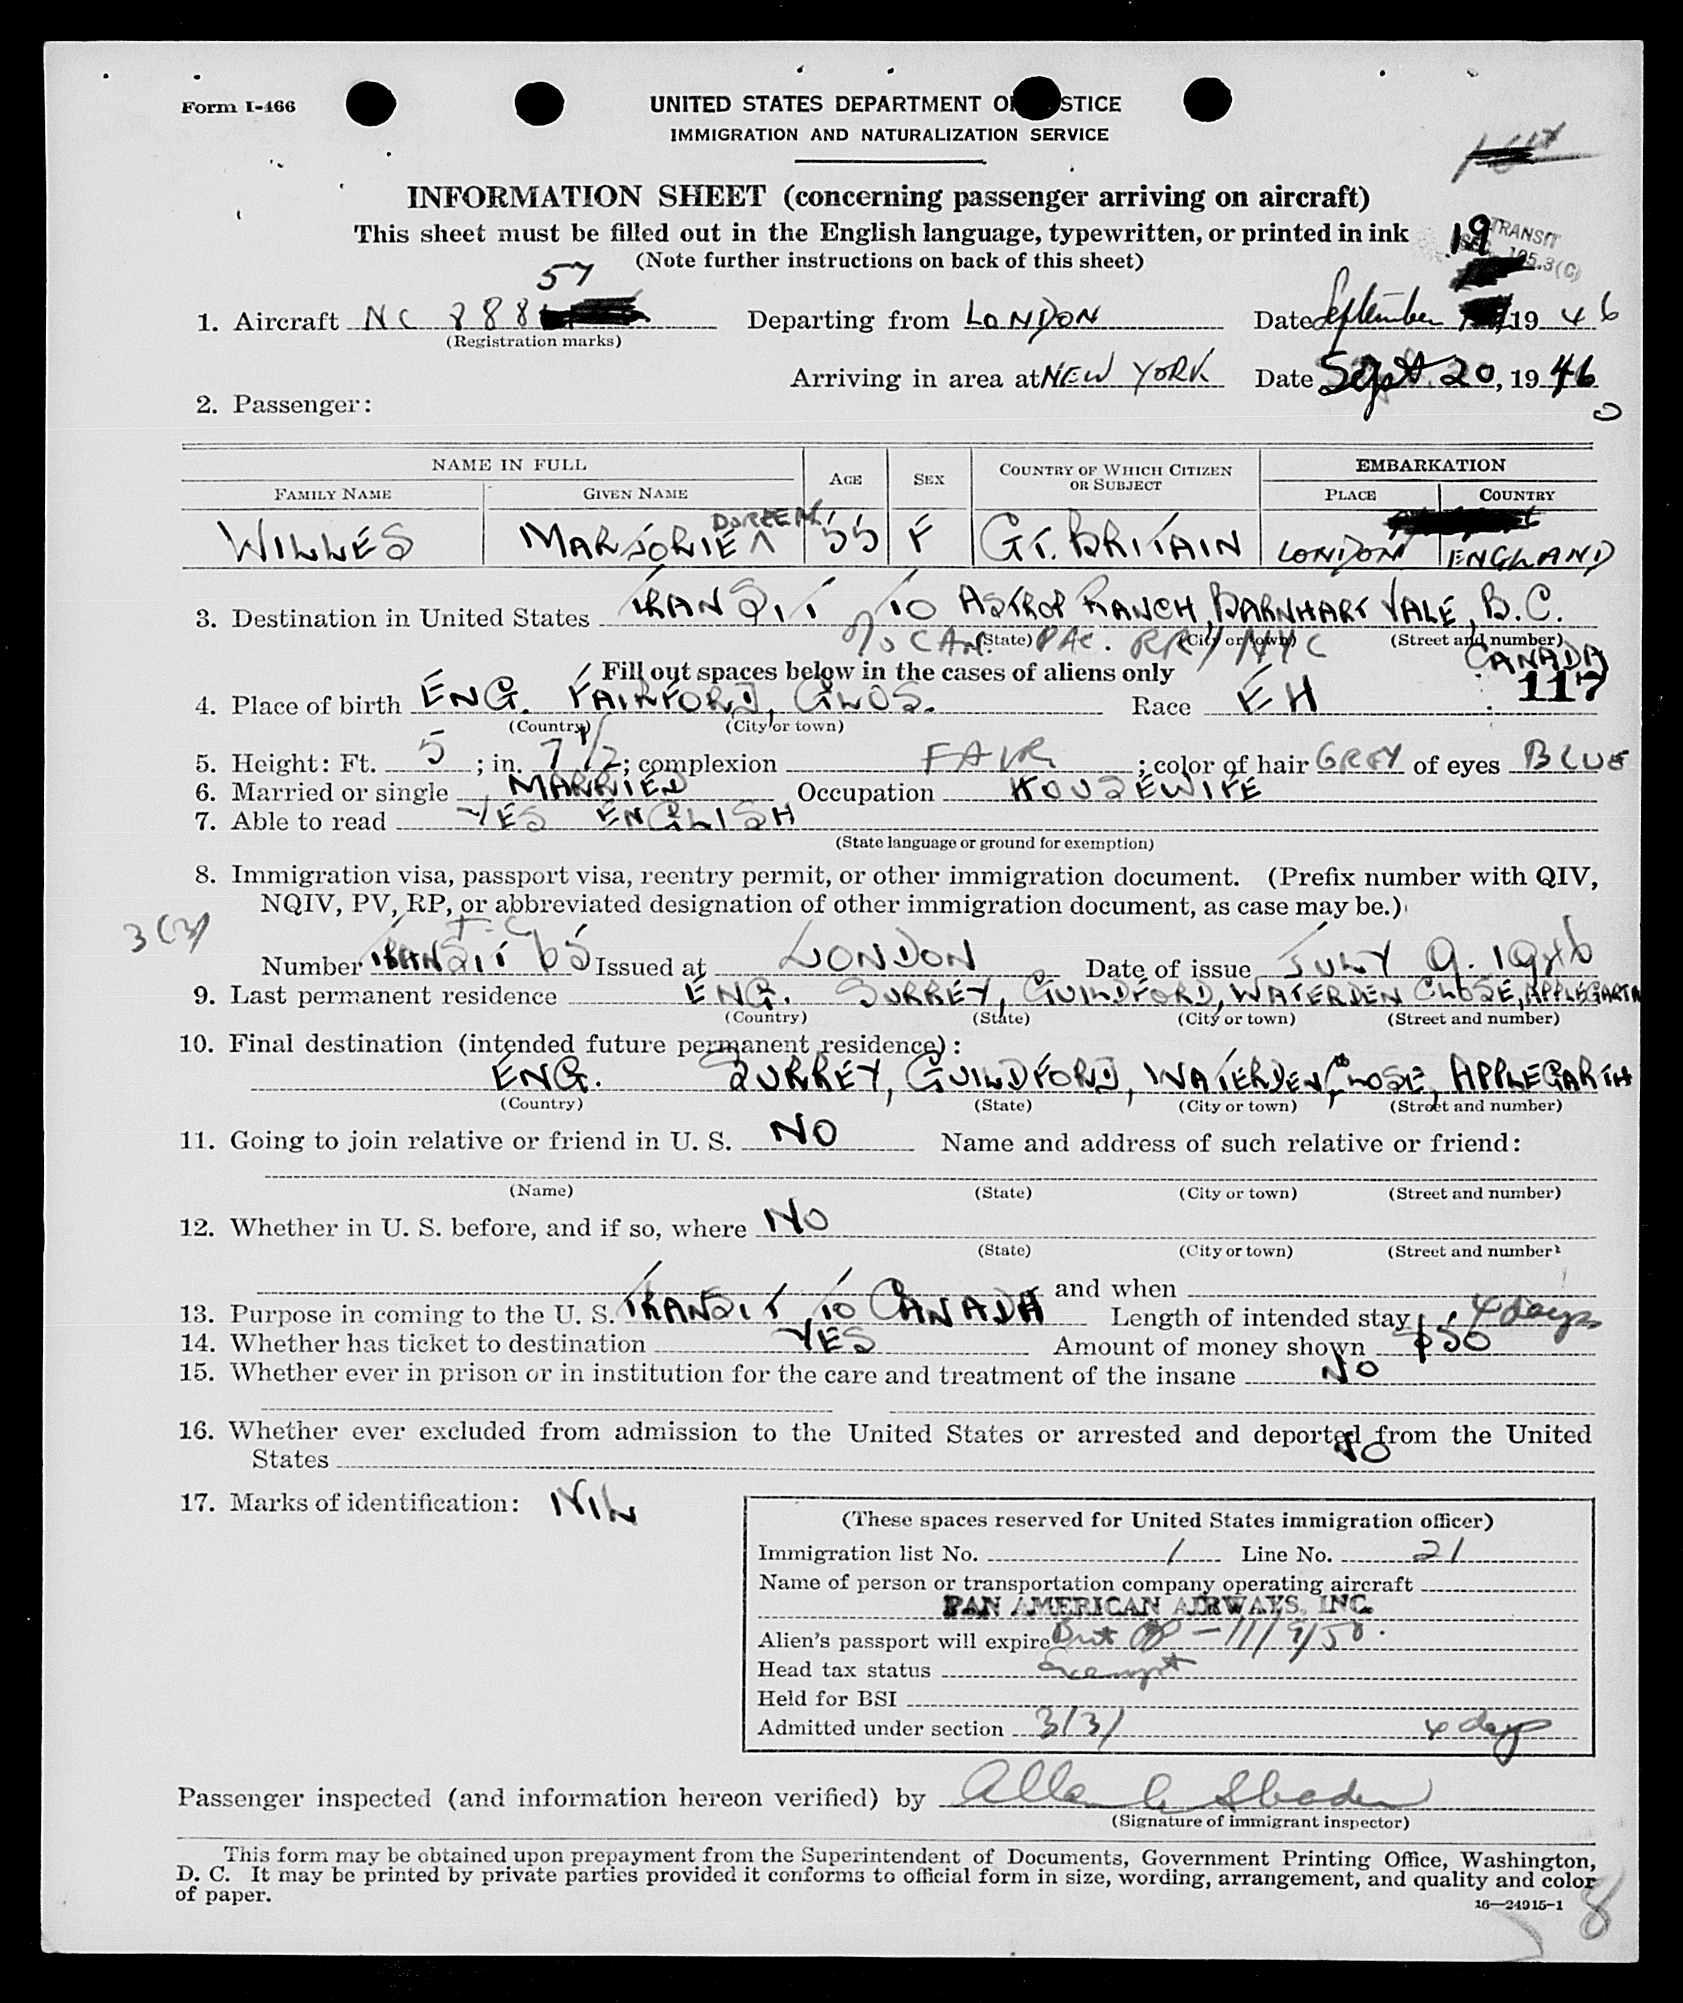 Form I-466
UNITED STATES DEPARTMENT O STICE
IMMIGRATION AND NATURALIZATION SERVICE
INFORMATION SHEET (concerning passenger arriving on aircraft)
This sheet must be filled out in the English language, typewritten, or printed in ink
(Note further instructions on back of this sheet)
19 TRANSIT
57
1. Aircraft NC 888 Departing from LONDON Date September 1946
(Registration marks)
Arriving in area at NEW YORK Date Sept 20, 1946
2. Passenger:
NAME IN FULL AGE SEX COUNTRY OF WHICH CITIZEN OR SUBJECT EMBARKATION
FAMILY NAME GIVEN NAME PLACE COUNTRY
WILLES MARJORIE DOREEN 55 F GT. BRITAIN LONDON ENGLAND
3. Destination in United States TRANSIT TO ASTROP RANCH, BARNHART VALE, B.C.
(State) (City or town) (Street and number)
% CAN. PAC. RR, NYC CANADA
Fill out spaces below in the cases of aliens only
117
4. Place of birth ENG. FAIRFORD, GLOS. Race EH
(Country) (City or town)
5. Height: Ft. 5; in. 7 1/2; complexion FAIR; color of hair GREY of eyes BLUE
6. Married or single MARRIED Occupation HOUSEWIFE
7. Able to read YES ENGLISH
(State language or ground for exemption)
8. Immigration visa, passport visa, reentry permit, or other immigration document. (Prefix number with QIV,
NQIV, PV, RP, or abbreviated designation of other immigration document, as case may be.)
3(3) T-C
Number TRANSIT 65 Issued at LONDON Date of issue JULY 9. 1946
9. Last permanent residence ENG. SURREY, GUILDFORD, WATERDEN CLOSE, APPLEGARTH
(Country) (State) (City or town) (Street and number)
10. Final destination (intended future permanent residence):
ENG. SURREY, GUILDFORD, WATERDEN CLOSE, APPLEGARTH
(Country) (State) (City or town) (Street and number)
11. Going to join relative or friend in U. S. NO Name and address of such relative or friend:
(Name) (State) (City or town) (Street and number)
12. Whether in U. S. before, and if so, where NO
(State) (City or town) (Street and number)
and when
13. Purpose in coming to the U. S. TRANSIT TO CANADA Length of intended stay 4 days
14. Whether has ticket to destination YES Amount of money shown $50
15. Whether ever in prison or in institution for the care and treatment of the insane NO
16. Whether ever excluded from admission to the United States or arrested and deported from the United
States NO
17. Marks of identification: NIL
(These spaces reserved for United States immigration officer)
Immigration list No. 1 Line No. 21
Name of person or transportation company operating aircraft
PAN AMERICAN AIRWAYS, INC.
Alien's passport will expire Brit PP - 11/9/50.
Head tax status Exempt
Held for BSI
Admitted under section 3(3) 4 days
Passenger inspected (and information hereon verified) by
(Signature of immigrant inspector)
This form may be obtained upon prepayment from the Superintendent of Documents, Government Printing Office, Washington,
D. C. It may be printed by private parties provided it conforms to official form in size, wording, arrangement, and quality and color
of paper.
16—24915-1
8